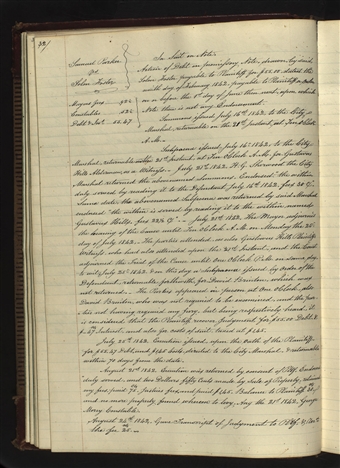 Samuel Parker
vs
John Foster
In Suit on Note
Action of Debt on promissory Note, drawn by said
John Foster, payable to Plaintiff for $55.00, dated the
of February 1842, payable to Plaintiff
on or before the 1st day of June then next, upon which
Note there is not any Endorsement.
Summons issued July 16th 1842, to the City
Marshal, returnable on the 21st instant, at Ten O'Clock
A.M.
Debt & Int. 55.47
Subpoena issued July 16th 1842 to the City
Marshal, returnable within 21st instant, at Ten O'Clock A.M. for Gustavus
Hills, as a Witness. July 21st 1842. the City
Marshal returned the abovenamed summons. Endorsed "the within
duly served by reading it to the Defendant July 16th 1842, fees 20 C."
Same date the abovenamed Subpoena was returned by said Marshal
endorsed "the within is served by reading it to the within named
Gustavus Hills, fees July 21st 1842. The Mayor adjourns
the hearing of the Cause until Ten O'Clock A.M. on Monday the 25th
day of July 1842. The parties attended, as also Gustavus Hills Plaintiff's
Witness, who had also attended upon the 21st instant, and the Court
adjourned the Trial of the Cause until One O'Clock P.M. on same day
to wit, July 25th 1842. & on this day a Subpoena issued by order of the
Defendant, returnable forthwith, for David Brinton, which was
not returned. The Parties appeared in person at One O'Clock, also
David Brinton, who was not required to be examined, and the par-
ties not having required any jury, but being respectively heard. it
is considered that the Plaintiff recover Judgment for $55.00 Debt, &
$.47 Interest, and also for costs of suit, taxed at $
July 25th 1842. Execution issued, upon the Oath of the Plaintiff,
for $55.47 Debt, and costs, directed to the City Marshal, & returnable
within 70 days from the date.
August 21st 1842. Execution was returned by consent of Plff. Endorsed
duly served, and two Dollars fifty Cents made by sale of Property, retaining
my fees, and Justice fees, and paid Balance to Plaintiff
and no more property found whereon to levy, Aug the 21st 1842. George
Morey Constable.
August 24th 1842. Gave Transcript of Judgment to Plff.